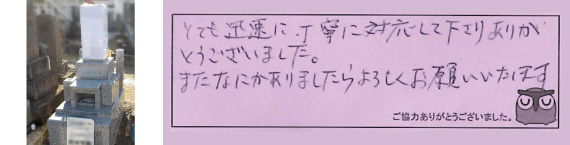 とても迅速に、丁寧に対応して下さりありが
とうございました。
またなにかありましたらよろしくお願いいたします
ご協力ありがとうございました。